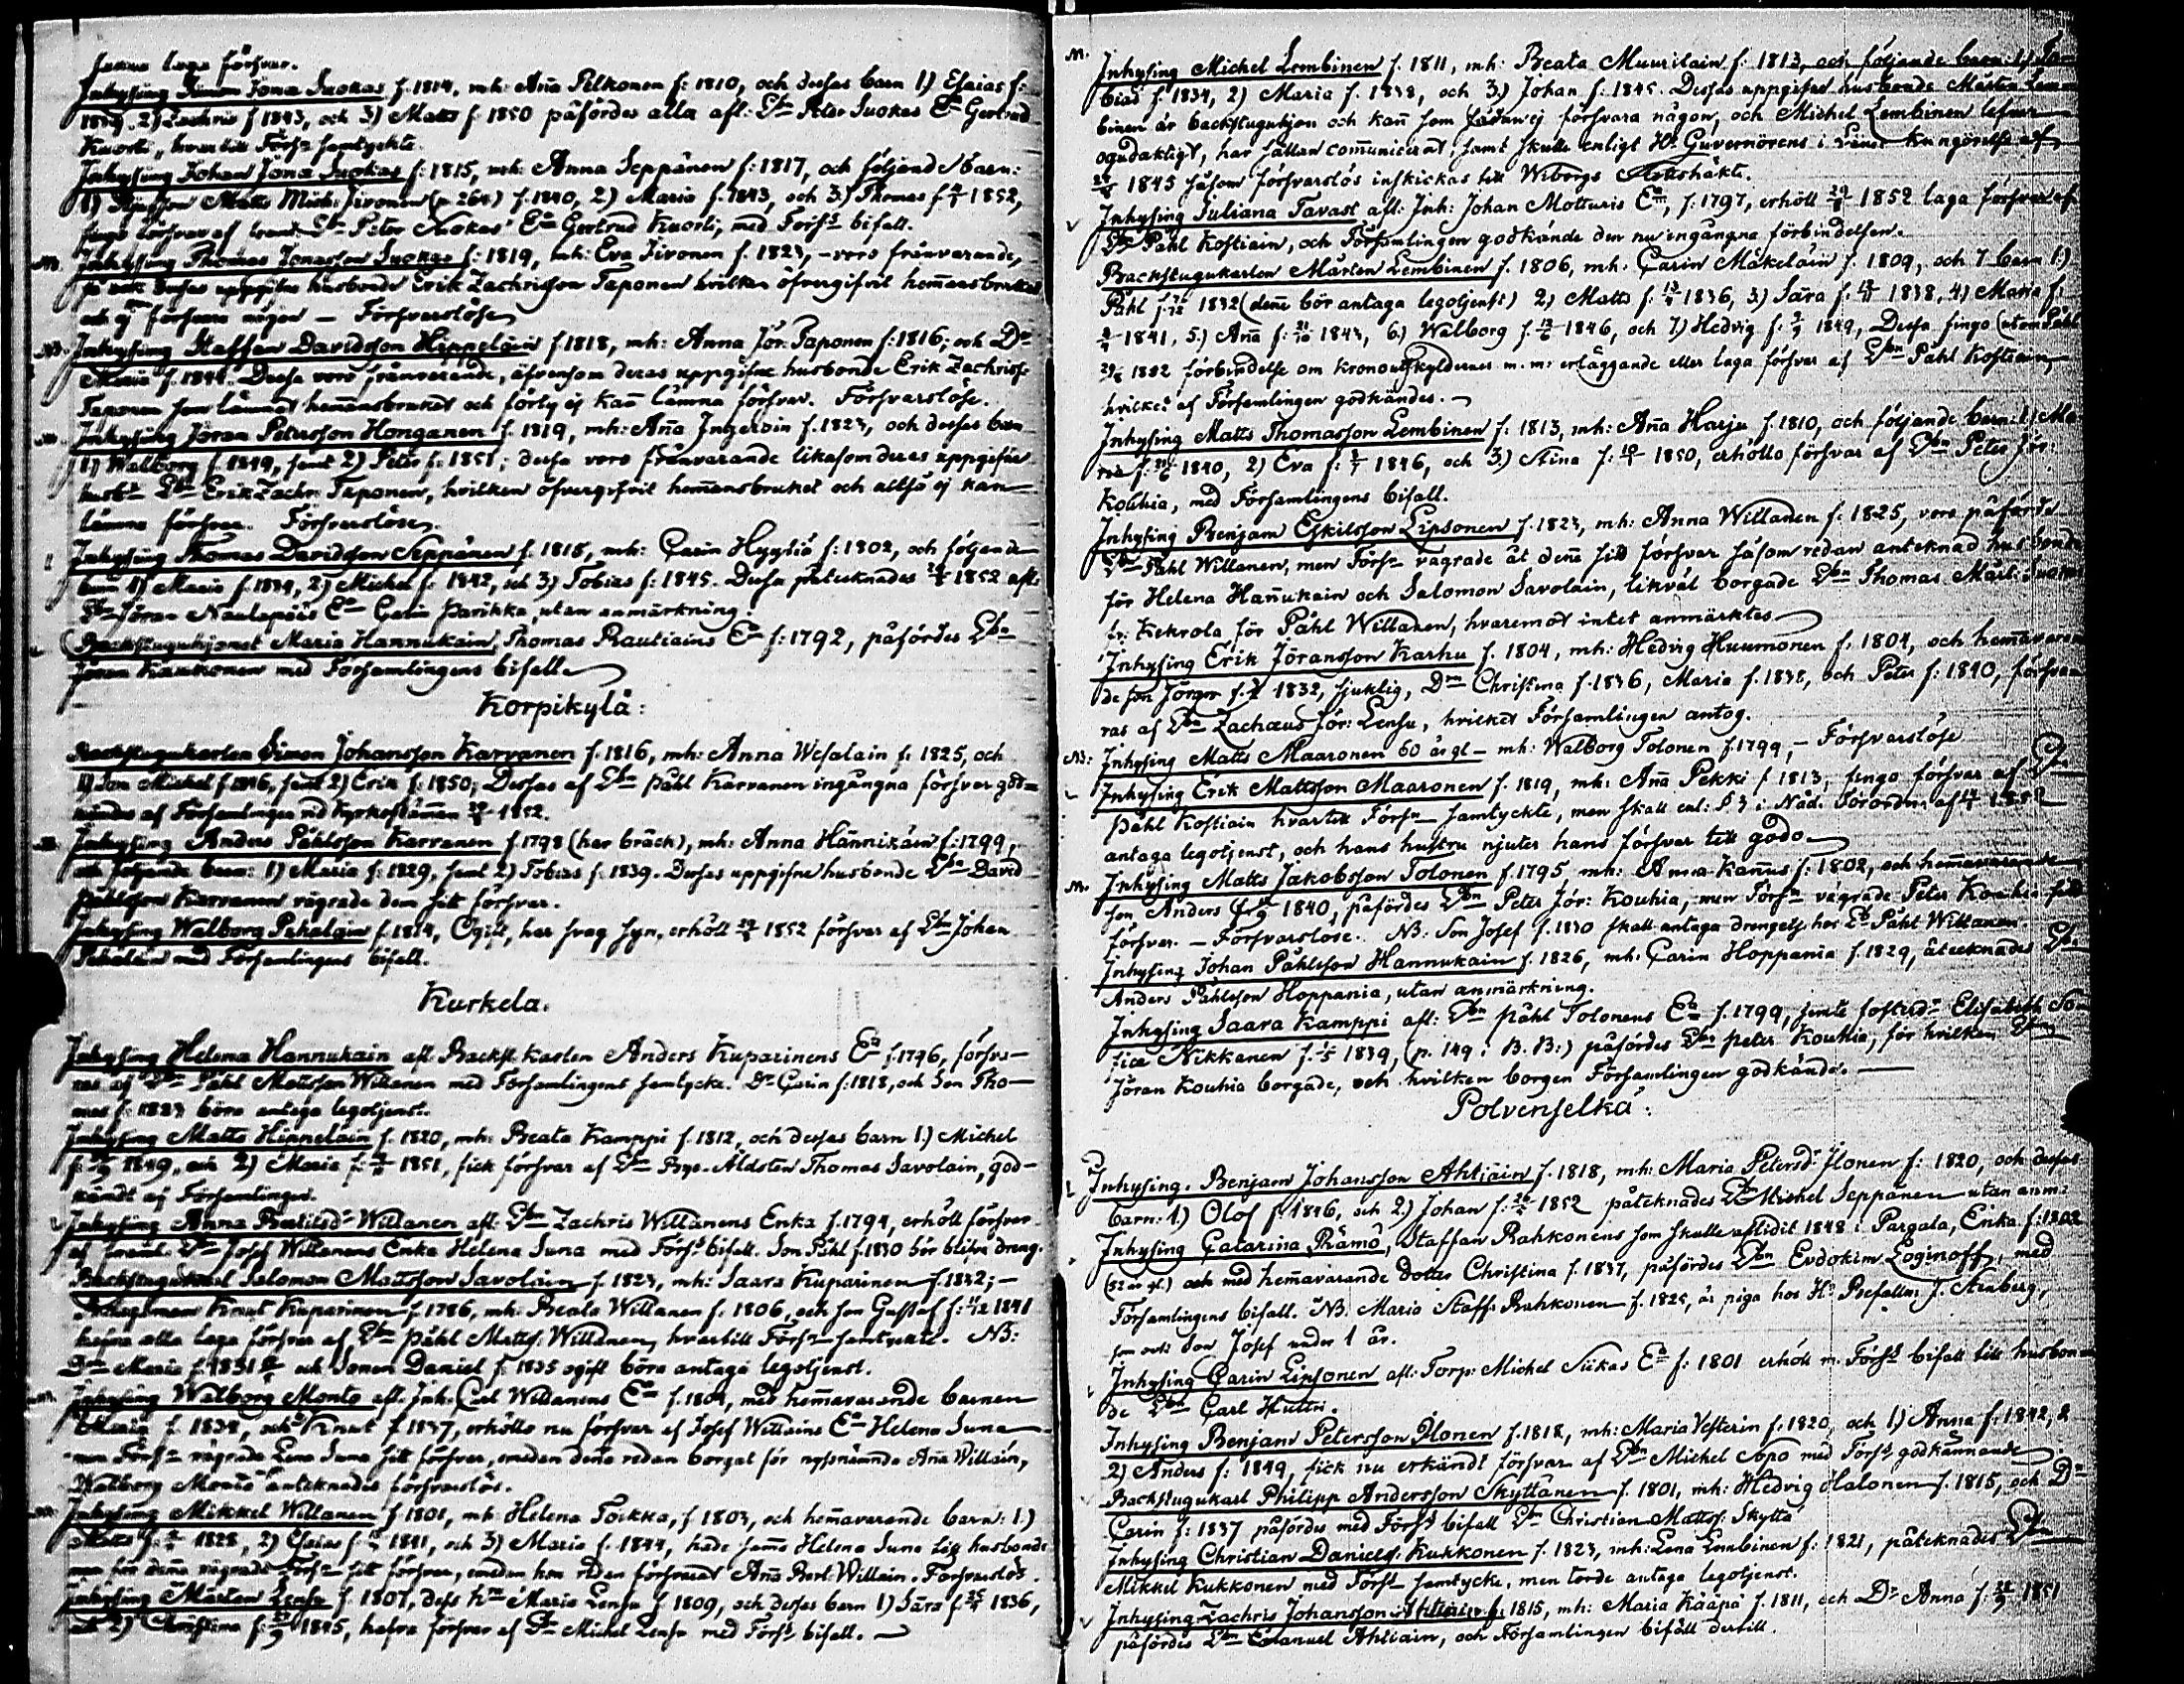 samma laga försvar.
Inhysing Simon Jona Suokas f. 1814, mh: Aña Pelkonen f: 1810, och dessas barn 1) Esaias f:
1839, 2) Zachris f 1843, och 3) Matts f 1850 påfördes alla afl: Bdn Peter Suokas Ea Gertrud
Kuorti, hvartill Förs:n samtyckte.
Inhysing Johan Jona Suokas f: 1815, mh: Anna Seppänen f: 1817, och följande barn:
1) Matts Mich: Jivonen (p. 264) f. 1840, 2) Maria f. 1843, och 3) Thomas f. 1852,
finge försvar af Bdn Peter Suokas' Ea Gertrud Kuorti, med Förs:s bifall.
Inhysing Thomas Jonasson Suokas f: 1819, mh: Eva Jivonen f. 1823, – voro frånvarande,
så ock dessas uppgifne husbonde Erik Zachrisson Taponen hvilken öfvergifvit hemansbruket
och ej försvara någon — Försvarslöse
NB. Inhysing Staffan Davidsson Hippeläin f 1818, mh: Anna Jör: Taponen f: 1816; och Dr
Maria f. 1844. Dessa voro frånvarande, äfvensom deras uppgifne husbonde Erik Zachriss:
Taponen som lämnat hemansbruket och förty ej kan lämna försvar. Försvarslöse.
Inhysing Jöran Petersson Honganen f. 1819, mh: Aña Ingeroin f. 1823, och dessas barn
1) Walborg f. 1849, samt 2) Peter f: 1851; dessa voro frånvarande likasom deras uppgifne
husb:de Bdn Erik Zachr: Taponen, hvilken öfvergifvit hemansbruket och alltså ej kan
lämna försvar. Försvarslöse.
Inhysing Thomas Davidsson Seppänen f. 1818, mh: Carin Hyytiä f: 1802, och följande
barn 1) Maria f. 1839, 2) Michel f. 1842, och 3) Tobias f: 1845. Dessa påtecknades 1852 afl:
Bdn Jöran Naulapäis Ea Carin Parikka, utan anmärkning.
Backstuguhjonet Maria Hannukain, Thomas Rautiains Ea f: 1792, påfördes Bdn
Jöran Kaukonen med Församlingens bifall.
Korpikylä:
Backstugukarlen Simon Johansson Karvanen f. 1816, mh: Anna Wesalain f. 1825, och
1) Son Michel f 1846, samt 2) Erik f. 1850; Dessas af Bdn Påhl Karvanen ingångna försvar god=
kändes af Församlingen vid Kyrkostämman 1852.
Inhysing Anders Påhlsson Karvanen f. 1798 (har bråck), mh: Anna Hännikäin f: 1799,
och följande barn: 1) Maria f: 1829, samt 2) Tobias f: 1839. Dessas uppgifne husbonde Bdn David
Påhlsson Karvanen vägrade dem sitt försvar.
Inhysing Walborg Pekolain f. 1814, Ogift, har svag syn, erhöll 1852 försvar af Bdn Johan
Pekolain med Församlingens bifall.
Kurkela.
Inhysing Helena Hannukain afl. Backst. karlen Anders Kuparinens Ea f. 1796, försva-
ras af Bdn Påhl Mattsson Willanen med Församlingens samtycke. Dr Carin f: 1818, och Son Tho-
mas f: 1823 böra antaga legotjenst.
Inhysing Matts Hippelain f. 1820, mh: Beata Kamppi f. 1812, och dessas barn 1.) Michel
f: 1849, och 2) Maria f: 1851, fick försvar af Bdn Bys-Åldsten Thomas Savolain, god-
kändt af Församlingen.
Inhysing Anna Willanen afl: Bdn Zachris Willanens Enka f. 1794, erhöll försvar
af Bdn Josef Willanens Enka Helena Suna med Förs:s bifall. Son Påhl f. 1830 bör blifva dreng.
Salomon Mattsson Savolain f. 1823, mh: Saara Kuparinen f. 1832; –
Knut Kuparinen f. 1786, mh: Beata Willanen f. 1806, och son Gustaf f: 1841
hafva alla laga försvar af Bdn Påhl Matts: Willanen, hvartill Förs:n samtyckte. NB:
Maria f. 1831 och Sonen Daniel f. 1835 ogift böra antaga legotjenst.
Inhysing Walborg Monto afl. Inh: Carl Willanens Ea f. 1804, med hemavarande barnen
Maria f. 1834, och Knut f. 1837, erhöllo nu försvar af Josef Willains Ea Helena Suna
men Förs:n vägrade Lena Suna sitt försvar, emedan deña redan borgat för nyssnämnde Aña Willain,
Walborg Monto antecknades försvarslös.
Inhysing Mikkel Willanen f. 1801, mh: Helena Toikka, f 1803, och hemavarande barn: 1.)
Matts f. 1828, 2) Esaias f. 1841, och 3) Maria f. 1844, hade samma Helena Suna till husbonde
men för deña vägrade Förs:n sitt försvar, emedan hon redan försvarat Aña Bert: Willain. Försvarslös.
Inhysing Mårten Lensu f. 1807, dess hu Maria Lensu f 1809, och dessas barn 1) Sara f. 1836,
och 2) Christina f: 1845, hafva försvar af Bdn Michel Lensu med Förs:s bifall. —
Inhysing Michel Lembinen f. 1811, mh: Beata Muurilain f: 1813, och följande barn: 1) To-
bias f. 1834, 2) Maria f. 1838, och 3) Johan f: 1845. Dessas uppgifne husbonde Mårten Lem-
binen är backstuguhjon och kan som sådan ej försvara någon, och Michel Lembinen lefver
ogudaktigt, har sällan communicerat, samt skulle enligt Hr Guvernörens i Länet kungörelse af
1845 såsom försvarslös inskickas till Wiborgs Slottshäkte.
Inhysing Juliana Tavast afl: Inh: Johan Motturis Ea, f. 1797, erhöll 1852 laga försvar af
Bdn Påhl Kostiain, och Församlingen godkände den nu ingångna förbindelsen.
Backstugukarlen Mårten Lembinen f. 1806, mh: Carin Mäkeläin f. 1809, och 7 barn 1.)
Påhl f. 1832 (deñe bör antaga legotjenst) 2) Matts f. 1836, 3) Sara f. 1838, 4) Maria f:
1841, 5.) Aña f: 1843, 6) Walborg f. 1846, och 7) Hedvig f: 1849, Dessa fingo (utom Påhl)
1852 förbindelse om kronoutskyldernes m. m: erläggande eller laga försvar af Bdn Påhl Kostiain,
hvilket af Församlingen godkändes.
Inhysing Matts Thomasson Lembinen f: 1813, mh: Aña Harju f. 1810, och följande barn: 1.) Ma-
ria f. 1840, 2) Eva f: 1846, och 3.) Stina f: 1850, erhöllo försvar af Bdn Peter Jör:
Kouhia, med Församlingens bifall.
Inhysing Benjam Eskilsson Lipsonen f. 1823, mh: Anna Willanen f: 1825, voro påförde
Bdn Påhl Willanen, men Förs:n vägrade åt deñe sitt försvar såsom redan anteknad husbonde
för Helena Hañukain och Salomon Savolain, likväl borgade Bdn Thomas Mårt: Suoma
fr: Kekrola för Påhl Willanen, hvaremot intet anmärktes.
Inhysing Erik Jöransson Karhu f. 1804, mh: Hedvig Huumonen f. 1804, och hemavaran
de son Jöran f. 1832, sjuklig, Drn Christina f. 1836, Maria f. 1838, och Peter f: 1840, försva-
ras af Bdn Zachaus Jör: Lensu, hvilket Församlingen antog.
NB: Inhysing Matts Maaronen 60 år gl – mh: Walborg Tolonen f. 1799, – Försvarslöse
Inhysing Erik Mattsson Maaronen f. 1819, mh: Aña Pekki f. 1813, fingo försvar af Bdn
Påhl Kostiain hvartill Förs:n samtyckte, men skall enl: § 3 i Nåd. Förordn: af 1852
antaga legotjenst, och hans hustru njuter hans försvar till godo.
Inhysing Matts Jakobsson Tolonen f. 1795 mh: Anna Kañus f: 1802, och hemavarande
son Anders f. 1840, påfördes Bdn Peter Jör: Kouhia, men Förs:n vägrade Peter Kouhia sitt
försvar. – Försvarslöse. NB: Son Josef f. 1830 skall antaga drengetj. hos Bd Påhl Willanen.
Inhysing Johan Påhlsson Hannukain f. 1826, mh: Carin Hoppania f. 1829, åtecknades Bdn
Anders Påhlsson Hoppania, utan anmärkning.
Inhysing Saara Kamppi afl: Bdn Påhl Tolonens Ea f. 1799, jemte fosterdr Elisabeth So-
fia Nikkanen f. 1839, (p. 149 i B. B:) påfördes Bdn Peter Kouhia, för hvilken Bdn
Jöran Kouhia borgade, och hvilken borgen Församlingen godkände. —
Polvenselkä:
Inhysing. Benjam Johansson Ahtiain f. 1818, mh: Maria Petersdr Ilonen f: 1820, och dessas
barn: 1.) Olof f. 1846, och 2.) Johan f: 1852 påteknades Bdn Michel Seppänen utan anm:
Inhysing Catarina Rämö, Staffan Rahkonens som skulle aflidit 1848 i Pargala, Enka f: 1802
(52 år gl.) och med hemavarande dotter Christina f. 1837, påfördes Bdn Evdokim Loginoff, med
Församlingens bifall. NB. Maria Staffs Rahkonen f. 1825, är piga hos Hr Befallm: J. Stenberg,
hon ock Son Josef under 1 år.
Inhysing Carin Lipsonen afl: Torp: Michel Siikas Ea f: 1801 erhöll m: Förs:s bifall till husbon
de Bdn Carl Huttu.
Inhysing Benjam Petersson Ilonen f. 1818, mh: Maria Vesterin f. 1820, och 1) Anna f: 1842, &
2) Anders f: 1849, fick nu erkändt försvar af Bdn Michel Sopo med Förs:s godkännande
Backstugukarl Philipp Andersson Skyttänen f. 1801, mh: Hedvig Halonen f. 1815, och Dr
Carin f: 1837 påfördes med Förs:s bifall Bdn Christian Matts: Skyttä
Inhysing Christian Daniels: Kukkonen f. 1823, mh: Lena Lembinen f: 1821, påteknades Bdn
Mikkel Kukkonen med Förs:s samtycke, men torde antaga legotjenst.
Inhysing Zachris Johansson Ahtiain f: 1815, mh: Maria Kääpä f. 1811, och Dr Anna f: 1851
påfördes Bdn Emanuel Ahtiain, och Församlingen biföll dertill.